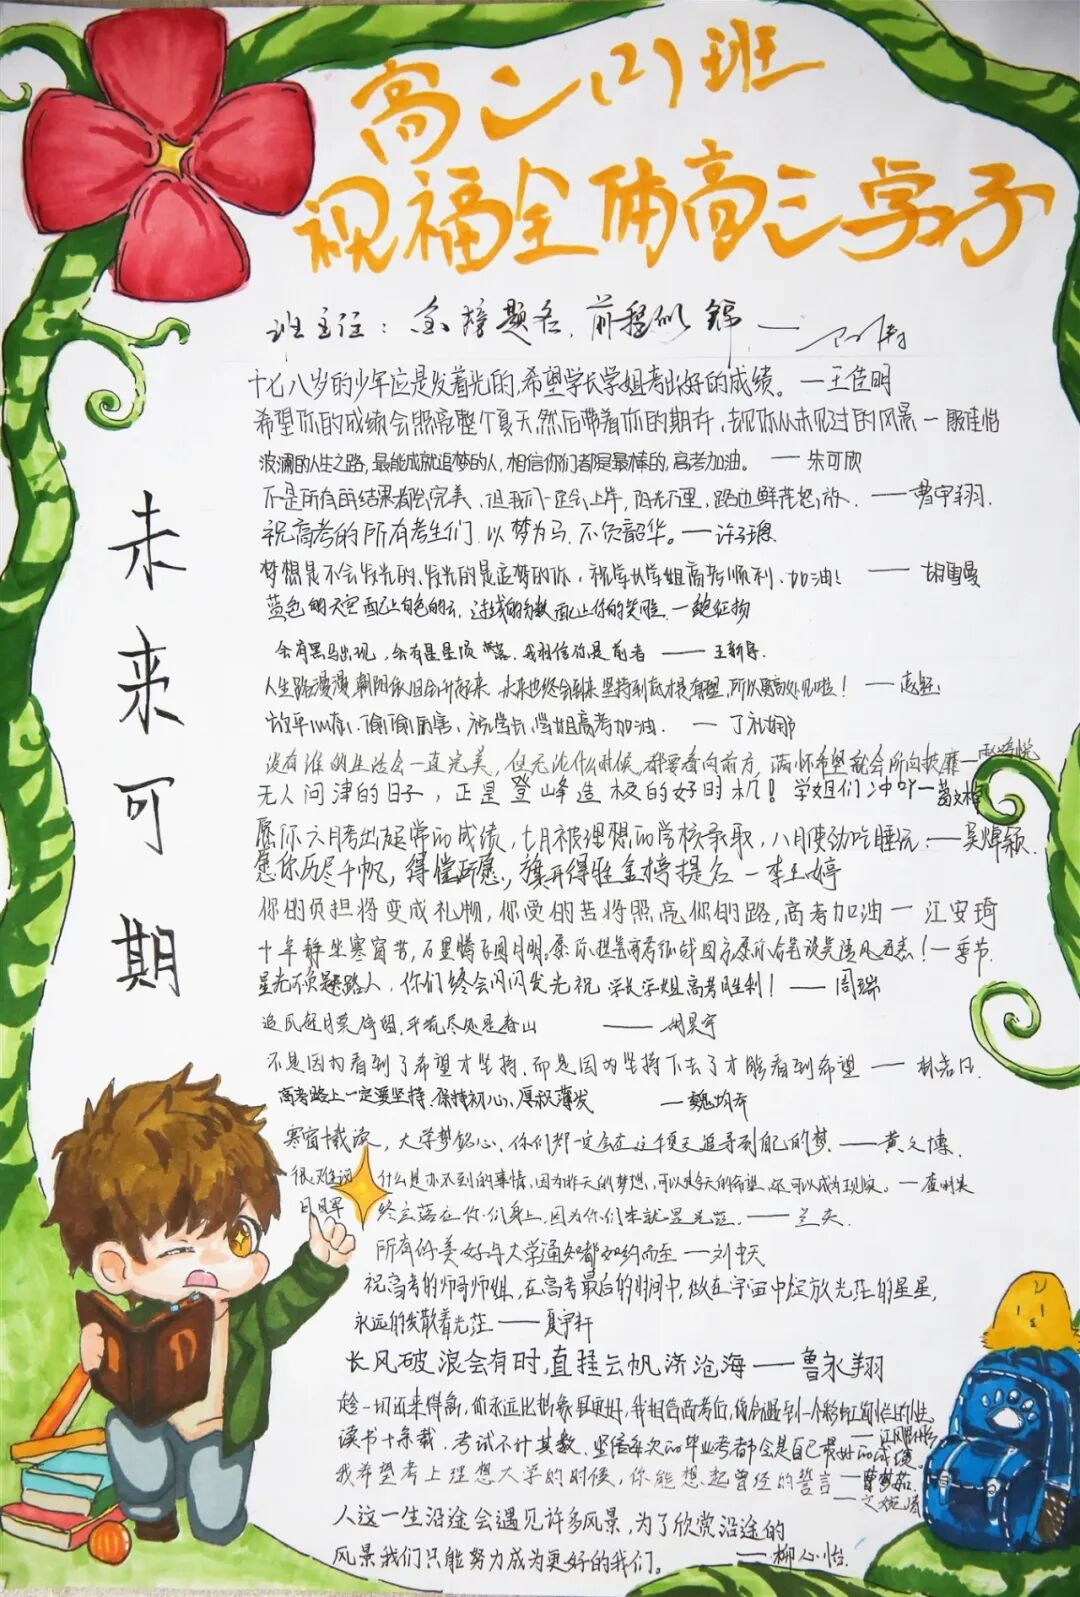 高二(2)班
祝福全体高三学子
未来可期
班主任：金榜题名，前程似锦——
十七八岁的少年应是发着光的，希望学长学姐考出好的成绩。—王佳明
希望你的成绩会照亮整个夏天，然后带着你的期许，去见你从未见过的风景—殷佳怡
波澜的人生之路，最能成就追梦的人，相信你们都是最棒的，高考加油。——朱可欣
不是所有的结果都会完美，但我们一定会上岸，阳光万里，路边鲜花怒放。——曹宇翔.
祝高考的所有考生们，以梦为马，不负韶华。——许
梦想是不会发光的，发光的是追梦的你，祝学长学姐高考顺利，加油！——胡雪曼
蓝色的天空配上白色的云，过线的分数配上你的笑脸.—鲍
会有黑马出现，会有星星陨落，我相信你是前者——王新
人生路漫漫，朝阳依旧会升起来，未来也终会到来，坚持到底才是有理，所以高处见啦！—
放平心态，偷偷厉害，祝学长，学姐高考加油.—丁礼娜
没有谁的生活会一直完美，但无论什么时候，都要看向前方，满怀希望就会所向披靡—
无人问津的日子，正是登峰造极的好时机！学姐们冲吖—葛文
愿你六月考出超常的成绩，七月被理想的学校录取，八月使劲吃睡玩.——吴焯颖.
愿你历尽千帆，得偿所愿，旗开得胜金榜提名—李玉婷
你的负担将变成礼物，你受的苦将照亮你的路，高考加油—江安琦
十年静坐寒窗苦，愿你提笔高考征战四方，愿你合笔谈笑清风！—季节.
星光不负赶路人，你们终会闪闪发光祝学长学姐高考胜利！——周瑞
追风赶月莫停留，平芜尽处是春山——胡昊宇
不是因为看到了希望才坚持，而是因为坚持下去了才能看到希望——林
高考路上一定要坚持，保持初心，厚积薄发——魏
寒窗十载，大学梦铭心，你们都一定会在这个夏天追寻到自己的梦.——黄文博.
很难说什么是办不到的事情，因为昨天的梦想，可以是今天的希望，还可以成为现实。—查
日月星终会落在你们身上，因为你们本就是光芒.——兰天.
所有的美好与大学通知都如约而至—刘中天
祝高考的师哥师姐，在高考最后的时间中，做在宇宙中绽放光芒的星星，
永远的散着光芒——夏宇轩
长风破浪会有时，直挂云帆济沧海——鲁永翔
趁一切还来得及，你永远比想象中更好，我相信高考后，你会遇到一个彩虹
读书十余载，考试不计其数，坚信每次的毕业考都会是自己最好的成绩。
我希望考上理想大学的时候，你能想起曾经的誓言—曹梦茹.
人这一生沿途会遇见许多风景，为了欣赏沿途的
风景我们只能努力成为更好的我们。——柳心怡.